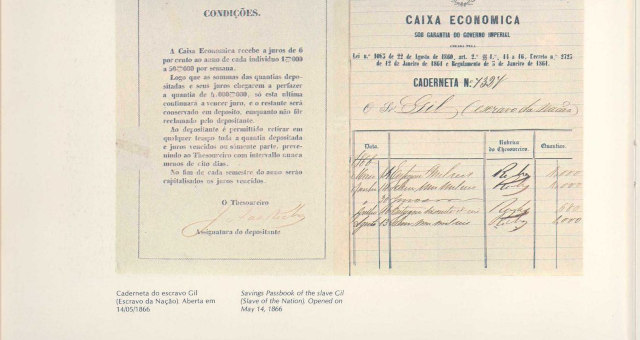 CONDIÇÕES.
A Caixa Economica recebe a juros de 6
por cento ao anno de cada individuo 1$000
a 50$000 por semana.
Logo que as sommas das quantias depo-
sitadas e seus juros chegarem a perfazer
a quantia de 4.000$000, só esta ultima
continuará a vencer juro, e o restante será
conservado em deposito, emquanto não fôr
reclamado pelo depositante.
Ao depositante é permittido retirar em
qualquer tempo toda a quantia depositada
e juros vencidos ou sómente parte, preve-
nindo ao Thesoureiro com intervallo nunca
menos de oito dias.
No fim de cada semestre do anno serão
capitalisados os juros vencidos.
O Thesoureiro
Assignatura do depositante
CAIXA ECONOMICA
SOB GARANTIA DO GOVERNO IMPERIAL
Lei n.º 1083 de 22 de Agosto de 1860, art. 2.º §§ 14 a 16, Decreto n.º 2723
de 12 de Janeiro de 1861 e Regulamento de 5 de Janeiro de 1861.
CADERNETA N.º 7327
O Sr. Gil (Escravo da Nação)
Data.
Rubrica do Thesoureiro.
Quantias.
1866
Caderneta do escravo Gil
(Escravo da Nação). Aberta em
14/05/1866
Savings Passbook of the slave Gil
(Slave of the Nation). Opened on
May 14, 1866